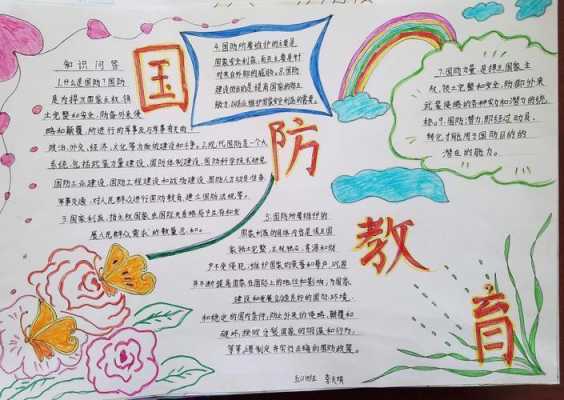 国防教育
知识问答
1.什么是国防?国防
是为捍卫国家主权、领
土完整和安全,防备外来侵
略和颠覆,所进行的军事及与军事有关的
政治、外交、经济、文化等方面的建设和斗争。2.现代国防是一个大
系统,包括武装力量建设、国防体制建设、国防科学技术研究
国防工业建设、国防工程建设和战场建设、国防人力动员准备
军事交通、对人民群众进行国防教育、建立国防法规等。
3.国家利益,指主权国家在国际关系格局中生存和发
展人民群众需求的数量总和。
4.国防所要维护的主要是
国家安全利益,而且主要是针
对来自外部的威胁。
5.国防所要维护的
国家利益的具体内容是:保卫国
家领土完整、主权独立、资源和财
产不受侵犯;维护国家的荣誉和尊严,巩固
并不断提高国家在国际上的地位和影响;为国家
建设和发展创造良好的国际环境
和稳定的国内条件;防止外来的侵略、颠覆和
破坏,挫败分裂国家的阴谋和行为,
等等;要制定并实行正确的国防政策。
7.国防力量,是捍卫国家主
权、领土完整和安全,防御外来
武装侵略的各种实力和潜力的统
称。8.国防潜力,即经过动员、
转化才能用于国防目的的
潜在的能力。